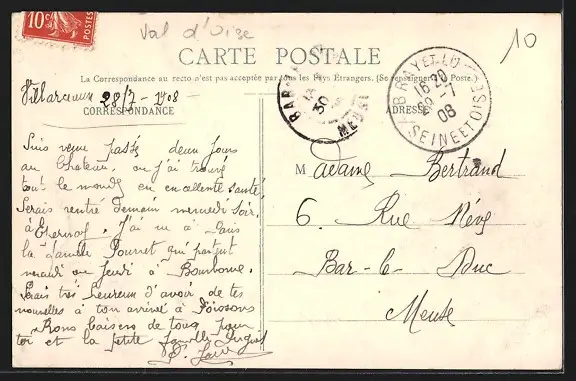 10c
POSTES
Val d'Oise
10
CARTE POSTALE
La Correspondance au recto n'est pas acceptée par tous les Pays Étrangers. (Se renseigner à la Poste.)
28/7 - 1908
CORRESPONDANCE
ADRESSE
BAR
30
MEUSE
BRAY ET LU
16 30
28 - 7
08
SEINE ET OISE
Suis venu passé deux jours
au Chateau, où j'ai trouvé
tout le monde en excellente santé,
Serais rentré demain mercredi soir,
à . J'ai vu à Paris
la famille qui partent
mardi ou jeudi à Bourbonne.
Serais très heureux d'avoir de tes
nouvelles à ton arrivée à
Bons baisers de tous pour
toi et la petite famille
Madame Bertrand
6. Rue Nève
Bar-le-Duc
Meuse